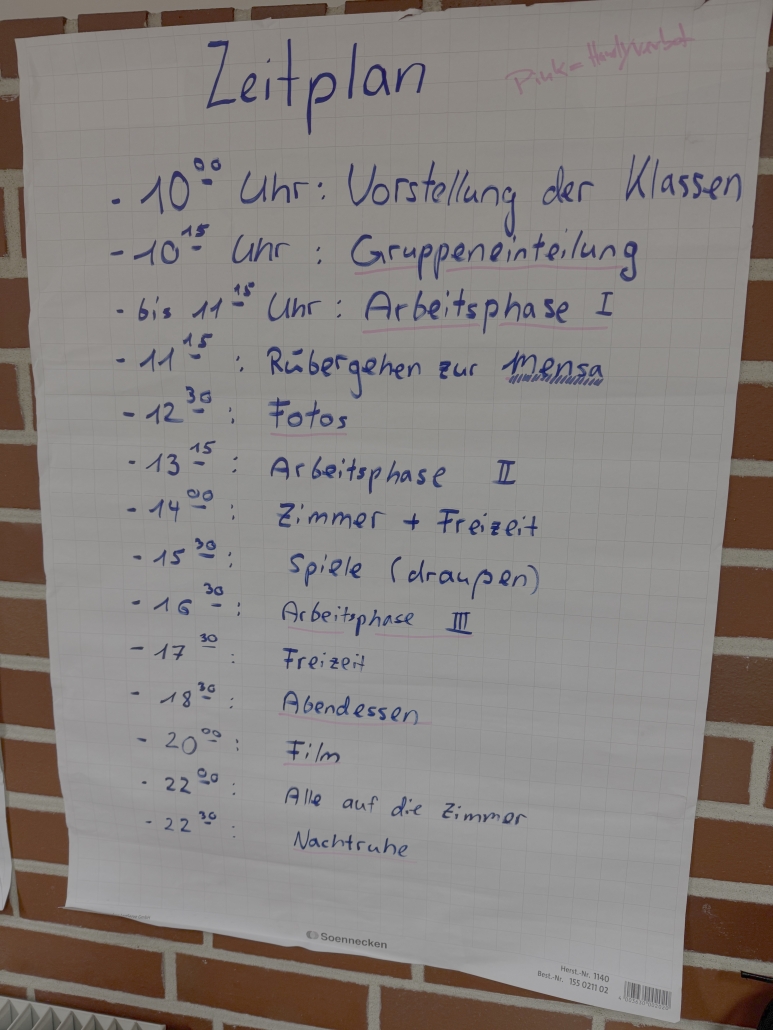 Zeitplan
Pink = Handyverbot
- 10⁰⁰ Uhr: Vorstellung der Klassen
- 10¹⁵ Uhr : Gruppeneinteilung
- bis 11¹⁵ Uhr : Arbeitsphase I
- 11¹⁵ : Rübergehen zur Mensa
- 12³⁰ : Fotos
- 13¹⁵ : Arbeitsphase II
- 14⁰⁰ : Zimmer + Freizeit
- 15³⁰ : Spiele (draußen)
- 16³⁰ : Arbeitsphase III
- 17³⁰ : Freizeit
- 18³⁰ : Abendessen
- 20⁰⁰ : Film
- 22⁰⁰ : Alle auf die Zimmer
- 22³⁰ : Nachtruhe
Soennecken
Herst.-Nr. 1140
Best.-Nr. 155 0211 02